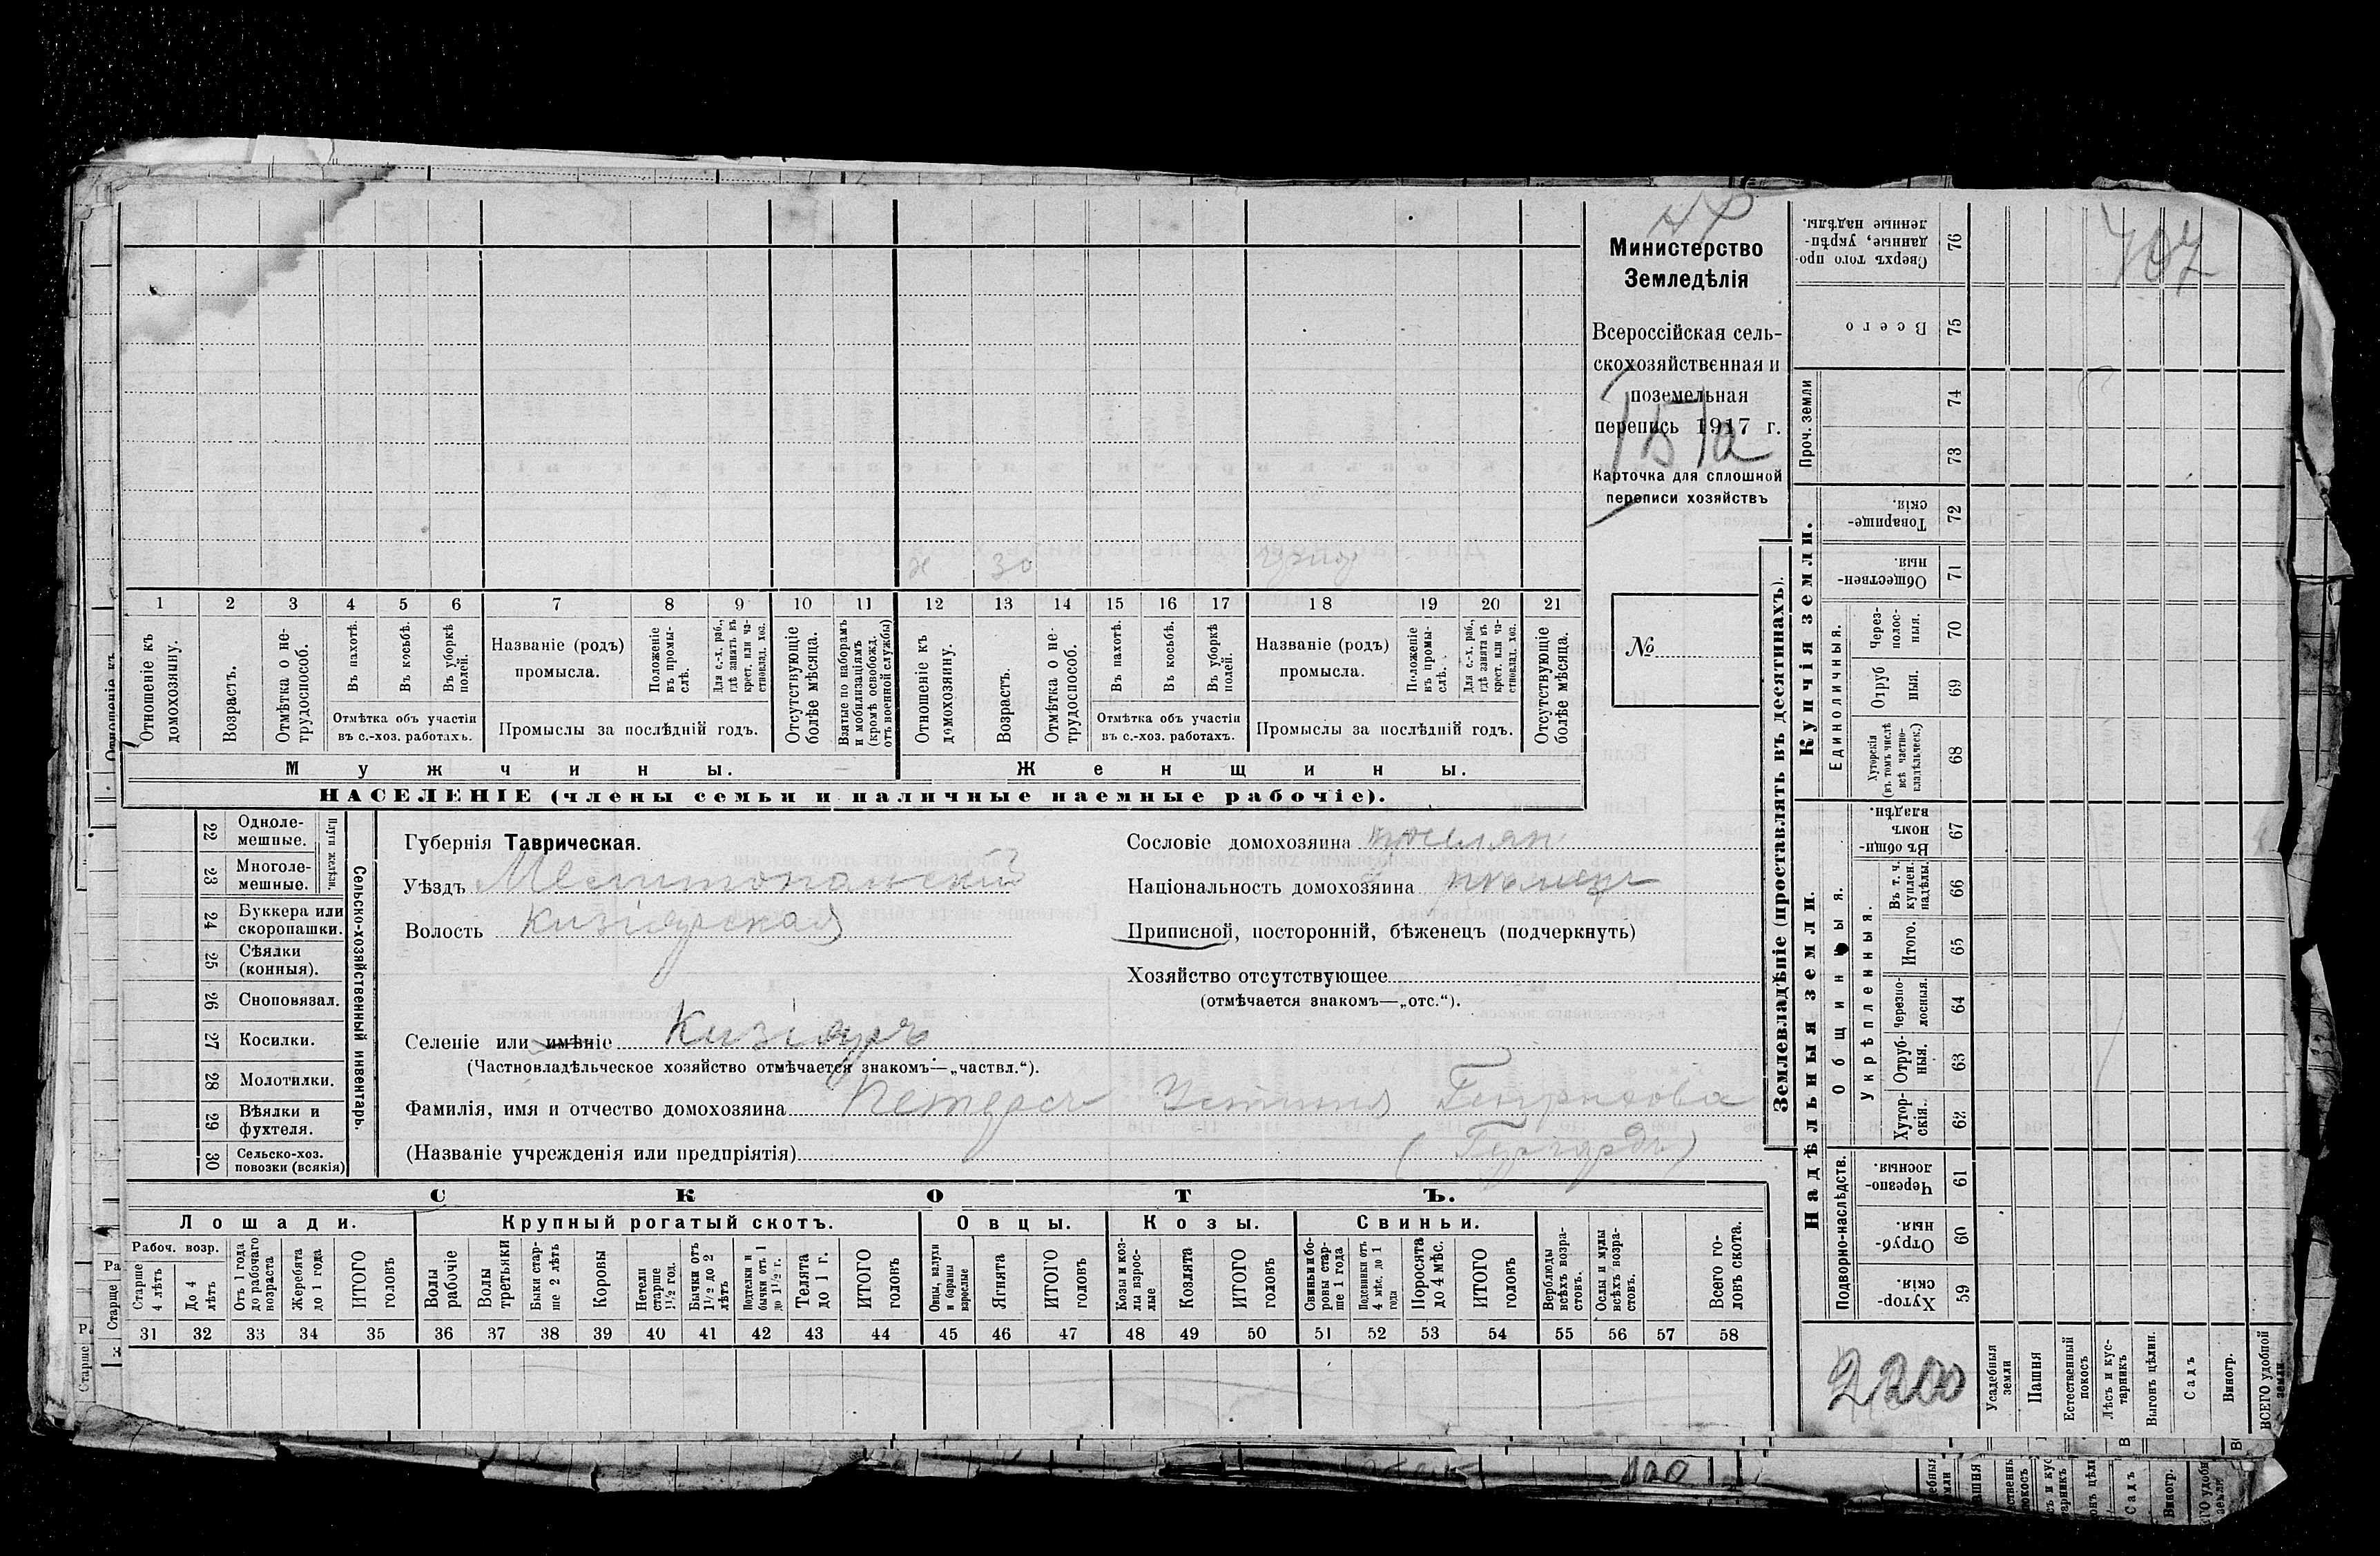 47
Министерство
Земледѣлія
Всероссійская сель-
скохозяйственная и
поземельная
перепись 1917 г.
Карточка для сплошной
переписи хозяйствъ
№
ж 30
1 2 3 4 5 6 7 8 9 10 11 12 13 14 15 16 17 18 19 20 21
Отношеніе къ домохозяину.
Возрастъ.
Отмѣтка о не-трудоспособ.
Въ пахотѣ.
Въ косьбѣ.
Въ уборкѣ полей.
Отмѣтка объ участіи
въ с.-хоз. работахъ.
Названіе (родъ)
промысла.
Положеніе въ промы-слѣ.
Для с.-х. раб., гдѣ занятъ въ крест. или ча-стновлад. хоз.
Промыслы за послѣдній годъ.
Отсутствующіе болѣе мѣсяца.
Взятые по наборамъ и мобилизаціямъ (кромѣ освобожд. отъ военной службы)
Отношеніе къ домохозяину.
Возрастъ.
Отмѣтка о не-трудоспособ.
Въ пахотѣ.
Въ косьбѣ.
Въ уборкѣ полей.
Отмѣтка объ участіи
въ с.-хоз. работахъ.
Названіе (родъ)
промысла.
Положеніе въ промы-слѣ.
Для с.-х. раб., гдѣ занята въ крест. или ча-стновлад. хоз.
Промыслы за послѣдній годъ.
Отсутствующіе болѣе мѣсяца.
Мужчины. Женщины.
НАСЕЛЕНІЕ (члены семьи и наличные наемные рабочіе).
22 Одноле-мешные.
23 Многоле-мешные.
Плуги желѣзн.
24 Буккера или скоропашки.
25 Сѣялки (конныя).
26 Сноповязал.
27 Косилки.
28 Молотилки.
29 Вѣялки и фухтеля.
30 Сельско-хоз. повозки (всякія)
Сельско-хозяйственный инвентарь.
Губернія Таврическая.
Уѣздъ Мелитопольскій
Волость Кизіярская
Селеніе или имѣніе Кизіяръ
(Частновладѣльческое хозяйство отмѣчается знакомъ—„частвл.“).
Фамилія, имя и отчество домохозяина Петерсъ Устинія Генрихова
(Названіе учрежденія или предпріятія) (Гергардъ)
Сословіе домохозяина поселян
Національность домохозяина нѣмецъ
Приписной, посторонній, бѣженецъ (подчеркнуть)
Хозяйство отсутствующее
(отмѣчается знакомъ—„отс.“).
СКОТЪ.
Лошади. Крупный рогатый скотъ. Овцы. Козы. Свиньи.
Рабоч. возр.
Старше 4 лѣтъ
До 4 лѣтъ
Отъ 1 года до рабочаго возраста
Жеребята до 1 года
ИТОГО головъ
Волы рабочіе
Волы третьяки
Быки стар-ше 2 лѣтъ
Коровы
Нетели старше 1½ год.
Бычки отъ 1½ до 2 лѣтъ
Подтелки и бычки отъ 1 до 1½ г.
Телята до 1 г.
ИТОГО головъ
Овцы, валухи и бараны взрослые
Ягнята
ИТОГО головъ
Козы и коз-лы взрос-лые
Козлята
ИТОГО головъ
Свиньи и бо-ровы стар-ше 1 года
Подсвинки отъ 4 мѣс. до 1 года
Поросята до 4 мѣс.
ИТОГО головъ
Верблюды всѣхъ возра-стовъ.
Ослы и мулы всѣхъ возра-стовъ.
Всего го-ловъ скота.
31 32 33 34 35 36 37 38 39 40 41 42 43 44 45 46 47 48 49 50 51 52 53 54 55 56 57 58
Землевладѣніе (проставлять въ десятинахъ).
Купчія земли.
Надѣльныя земли.
76 Сверхъ того про-данные, укрѣп-ленные надѣлы.
75 Всего
Проч. земли
74
73
72 Товарище-скія.
71 Обществен-ныя.
Единоличныя.
70 Через-полос-ныя.
69 Отруб ныя.
68 Хуторскія (въ томъ числѣ всѣ частно-владѣльческ.)
Общинныя.
67 Въ общи-номъ владѣн.
Укрѣпленныя.
66 Въ т. ч. куплен. надѣлы.
65 Итого.
64 Черезпо-лосныя.
63 Отруб-ныя.
62 Хутор-скія.
Подворно-наслѣдств.
61 Черезпо-лосныя.
60 Отруб-ныя.
59 Хутор-скія.
2200
Усадебныя земли
Пашня
Естественный покосъ
Лѣсъ и кус-тарникъ
Выгонъ цѣлин.
Садъ
Виногр.
ВСЕГО удобной земли.
120